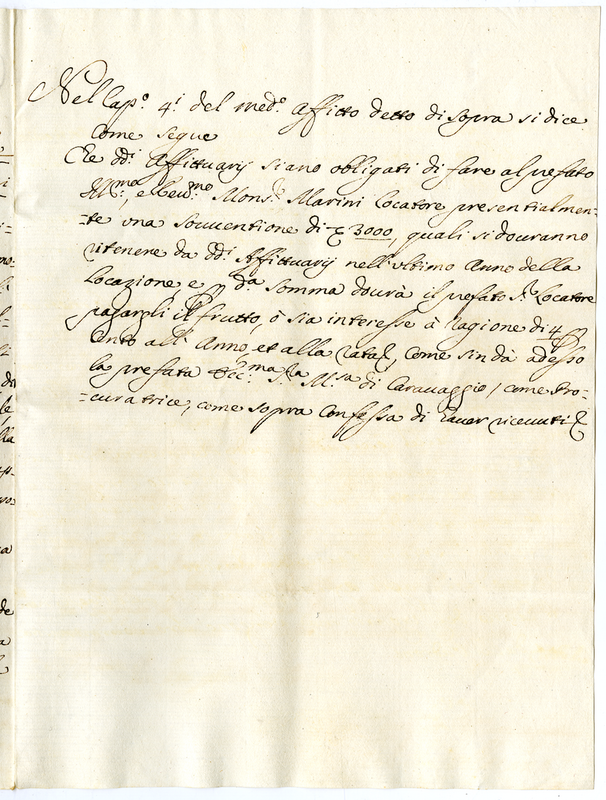 Nel Cap.º 4.º del med.º Affitto detto di sopra si dice
Come segue
Che dd.i Affittuarij siano obligati di fare al prefato
Ill.mo, e Rev.mo Mons.r Marini Locatore presentialmen-
-te una souuentione di £ 3000, quali si douranno
ritenere da dd.i Affittuarij nell'ultimo Anno della
Locazione, e p da somma dourà il prefato S.r Locatore
pagargli il frutto, ò sia interesse à ragione di 4 p
Cento all'Anno, et alla rata, Come sin da adesso
la prefata Ecc.ma S.ra M.sa di Carauaggio / come Pro-
-curatrice, come sopra Confessa di hauer riceuuti